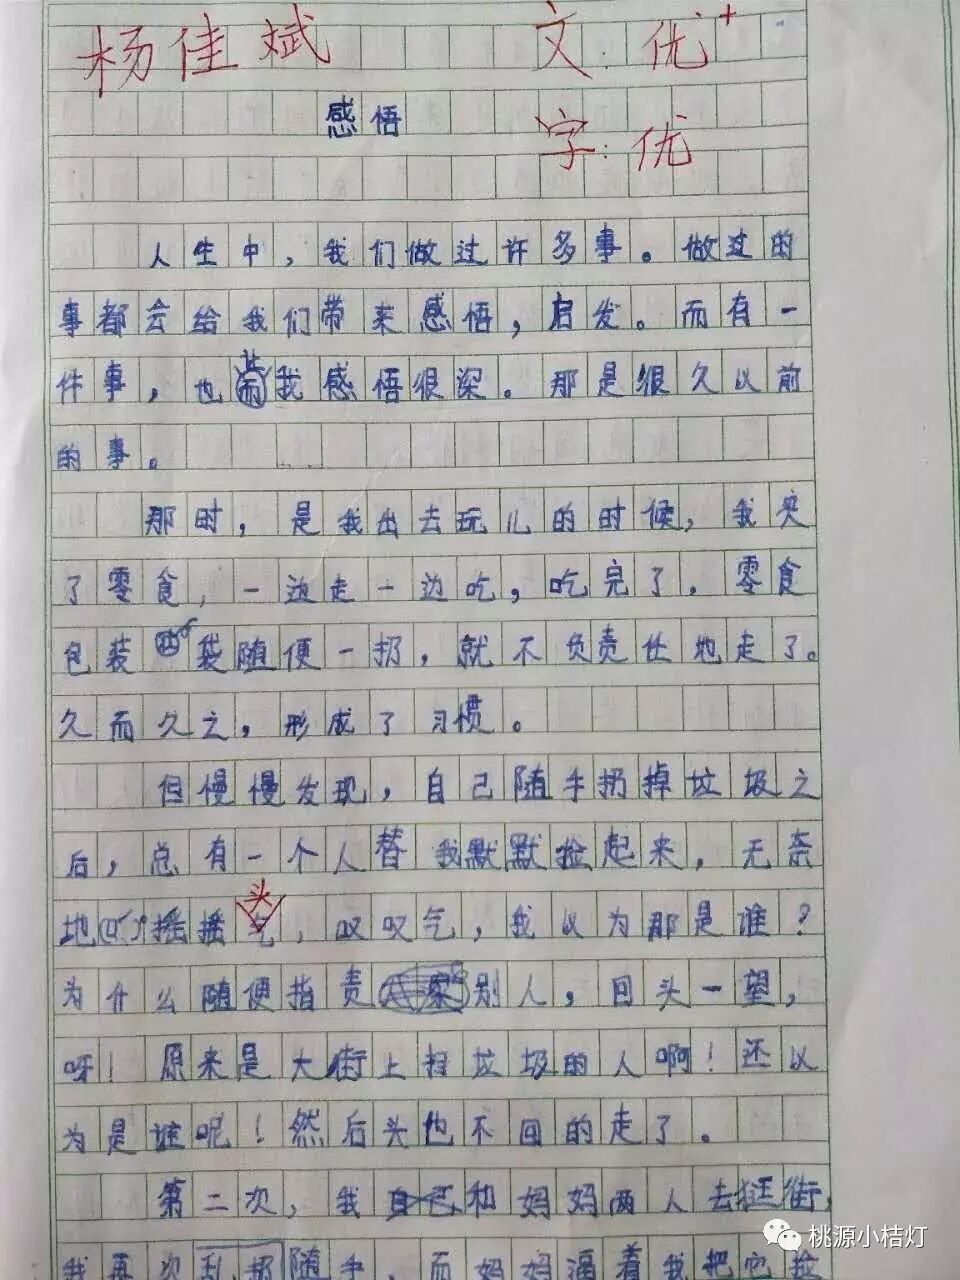 杨佳斌 文:优+
感悟
字:优
人生中，我们做过许多事。做过的
事都会给我们带来感悟，启发。而有一
件事，也让我感悟很深。那是很久以前
的事。
那时，是我出去玩儿的时候，我买
了零食，一边走一边吃，吃完了。零食
包装袋随便一扔，就不负责任地走了。
久而久之，形成了习惯。
但慢慢发现，自己随手扔掉垃圾之
后，总有一个人替我默默捡起来，无奈
地摇摇头，叹叹气，我以为那是谁？
为什么随便指责别人，回头一望，
呀！原来是大街上扫垃圾的人啊！还以
为是谁呢！然后头也不回的走了。
第二次，我和妈妈两人去逛街，
我再次乱扔随手，而妈妈逼着我把它捡
桃源小桔灯